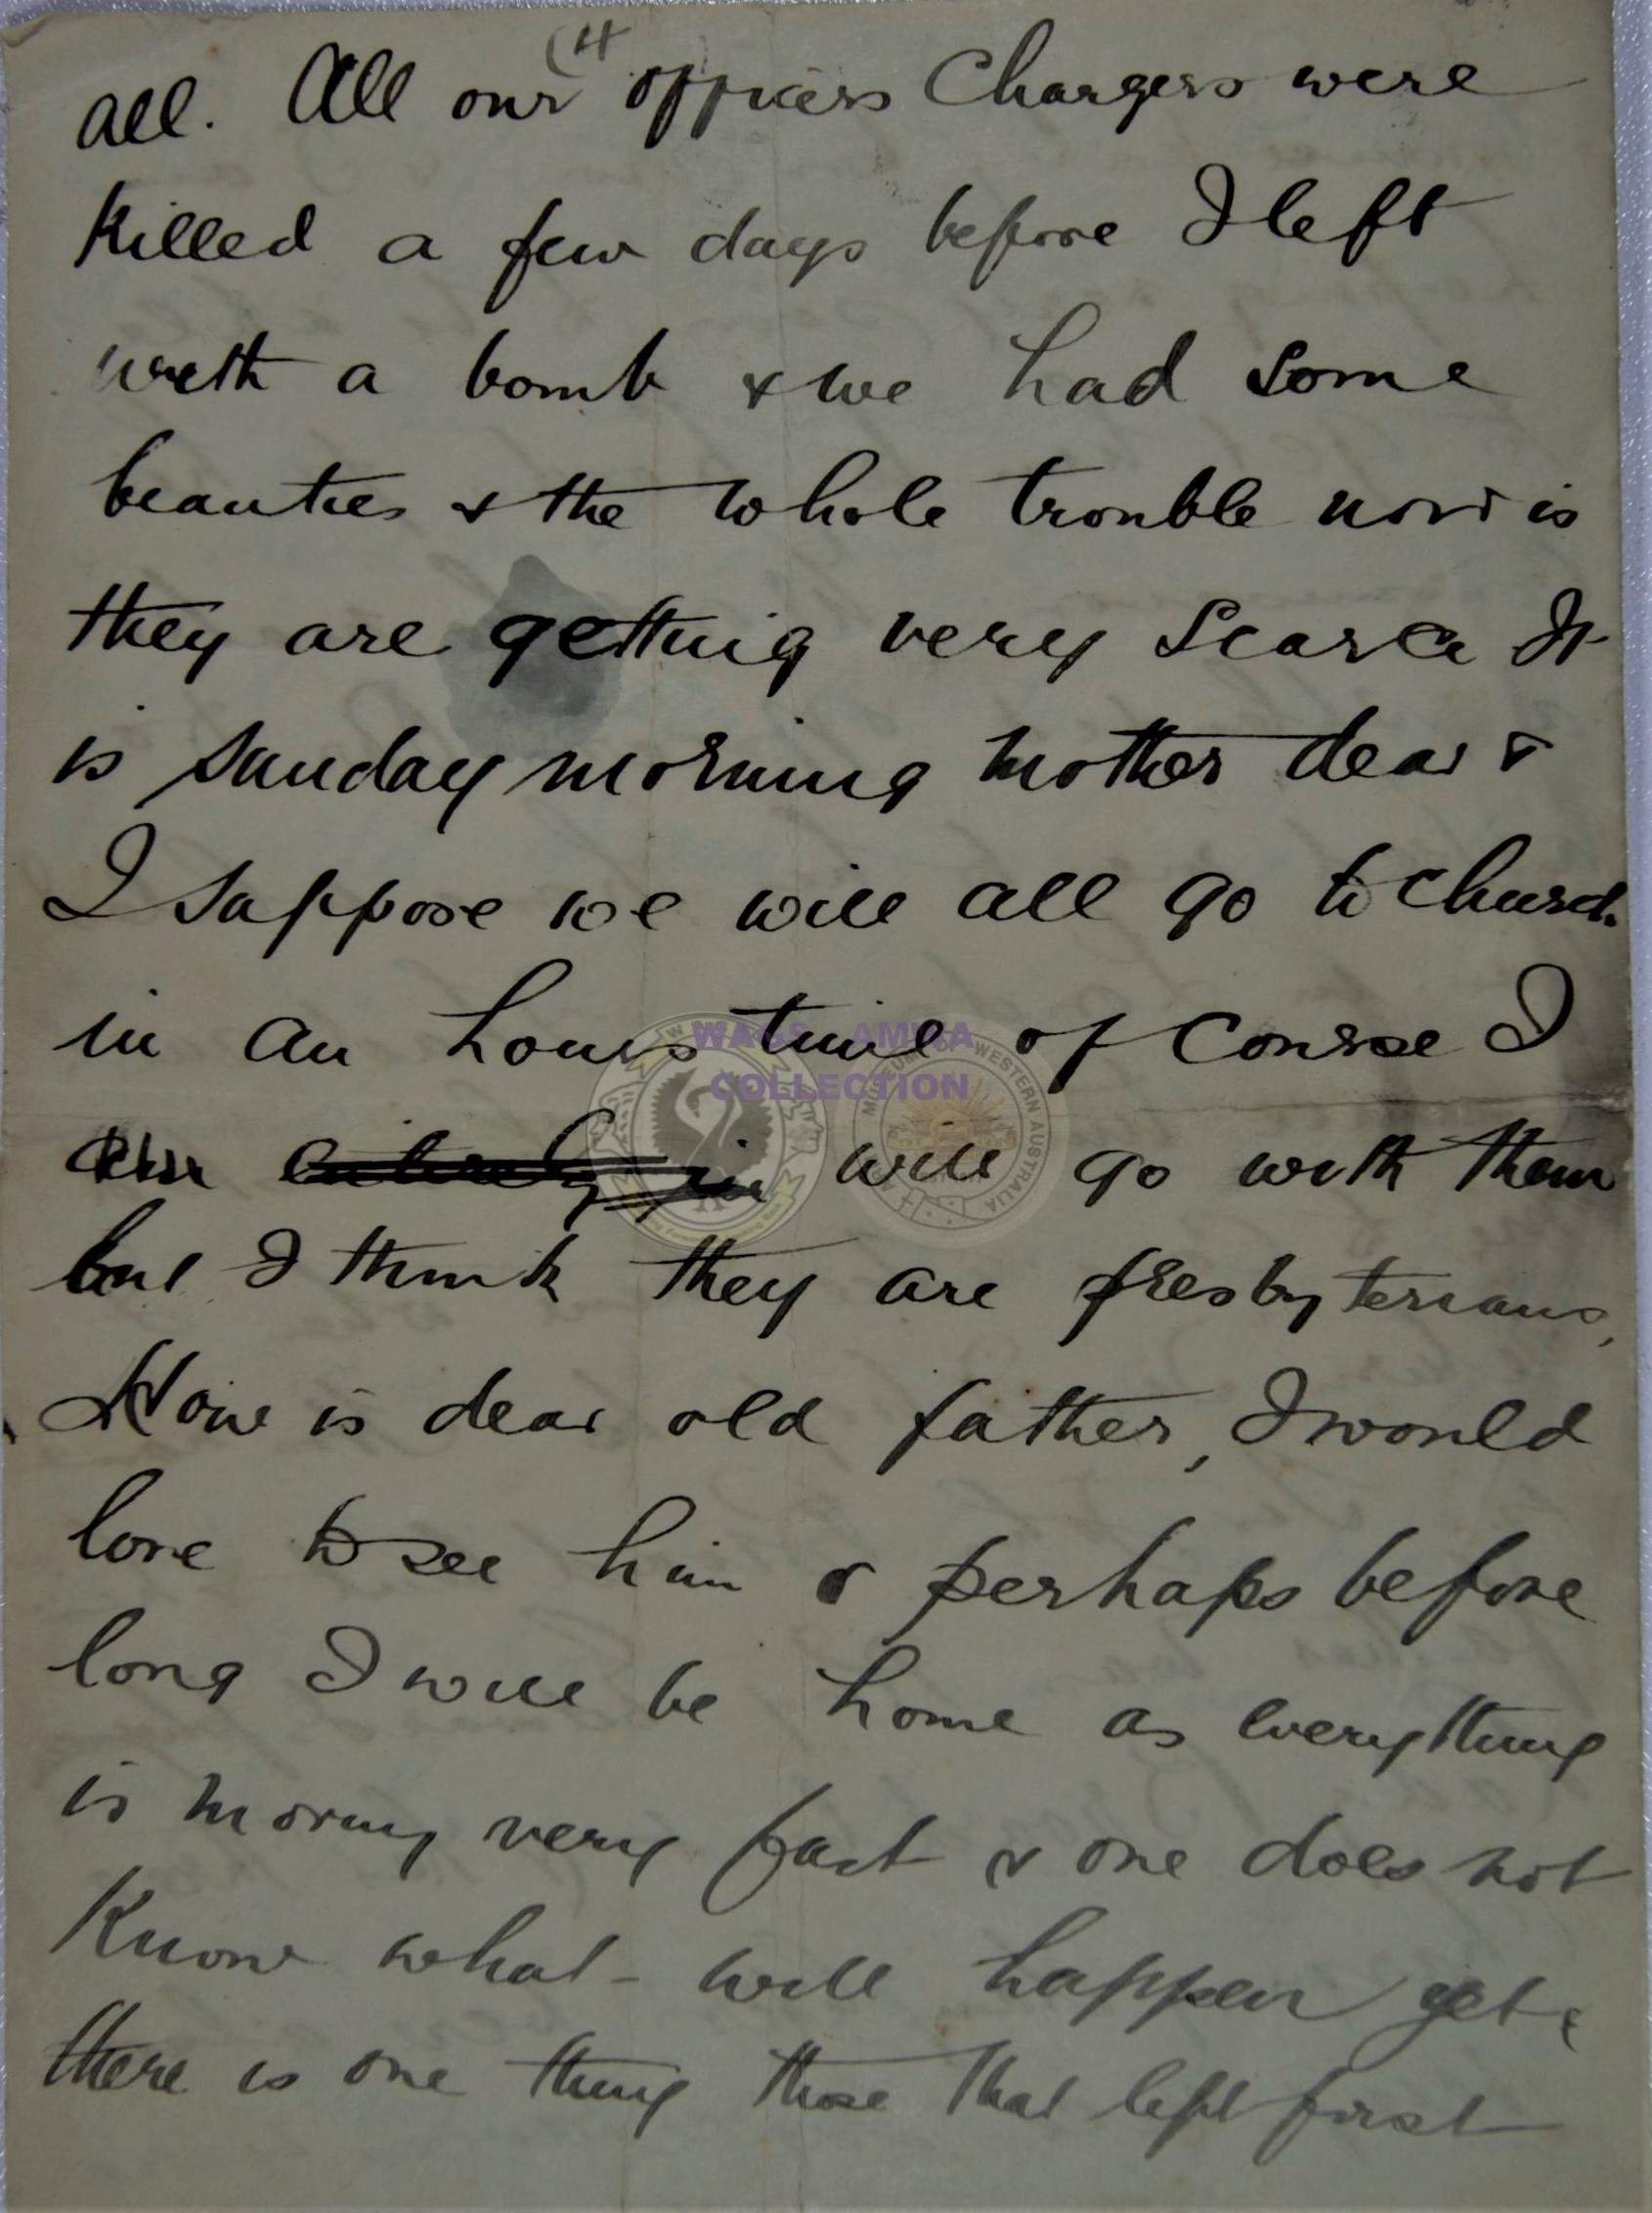 (4
all. All our officers Chargers were
killed a few days before I left
with a bomb & we had some
beauties & the whole trouble now is
they are getting very scarce It
is Sunday morning mother dear &
I suppose we will all go to church
in an hours time of course I
will go with them
but I think they are presbyterians,
How is dear old father, I would
love to see him & perhaps before
long I will be home as everything
is moving very fast & one does not
know what will happen yet &
there is one thing those that left first
WAGS AMWA
COLLECTION
MUSEUM OF WESTERN AUSTRALIA